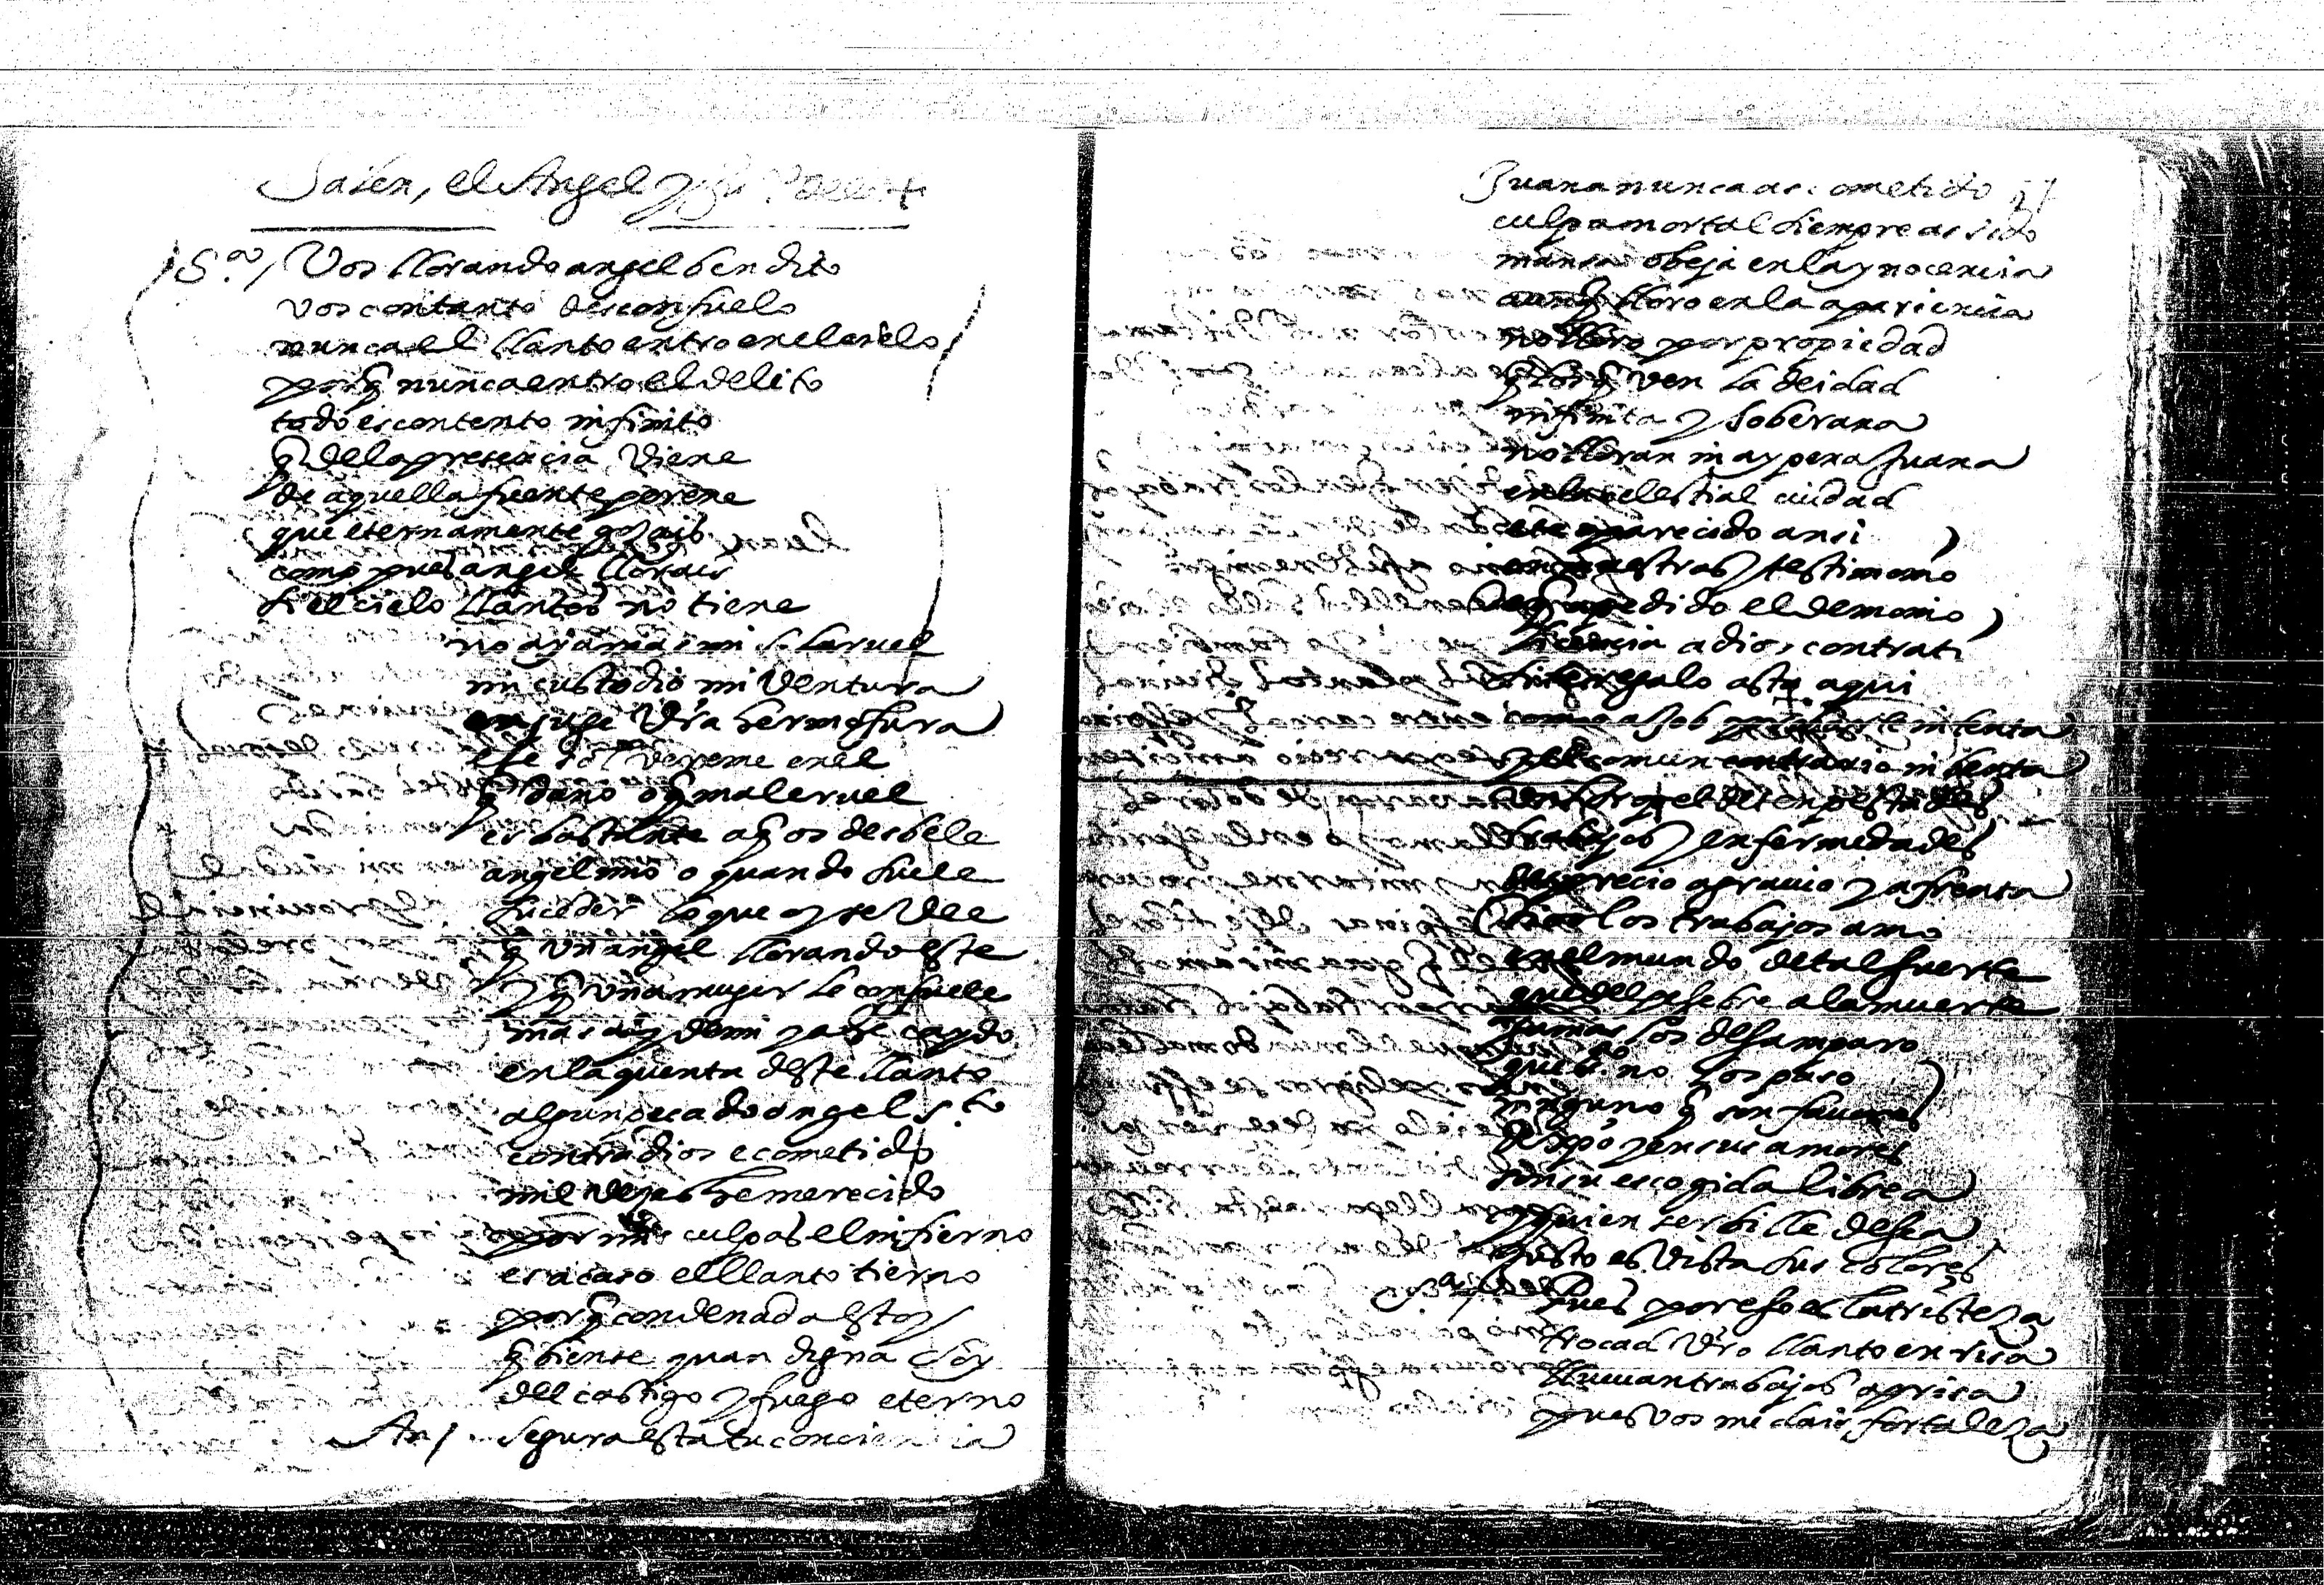 Salen, el Angel y
S.ta / Vos llorando angel bendito
vos con tanto desconsuelo
nunca el llanto entro en el cielo
porq̃ nunca entro el delito
todo es contento infinito
q̃ de la presencia viene
de aquella fuente perene
que eternamente gozais
como pues angel llorais
si el cielo llantos no tiene
no aya mas mi s. laruel
mi custodio mi ventura
enjuge vr̃a hermosura
ese sol vereme en el
q̃ daño o q̃ mal cruel
es bastante a q̃ os desbele
angel mio o quando suele
suceder lo que oy se vee
q̃ vn angel llorando este
y q̃ vna muger le consuele
mas ay de mi ya he caydo
en la quenta deste llanto
algun pecado angel s.to
contra dios e cometido
mil vezes he merecido
por mis culpas el infierno
es acaso el llanto tierno
porq̃ condenada estoy
q̃ biense quan digna soy
del castigo y fuego eterno
An / segura esta tu conciencia
Juana nunca as cometido
culpa mortal siempre as sido
mansa obeja en la ynocencia
aunq̃ lloro en la apariencia
no lloro por propiedad
q̃ los q̃ ven la deidad
infinita y soberana
no lloran ni ay pena Juana
en la celestial ciudad
e te aparecido ansi
en muestras y testimonio
de q̃ a pedido el demonio
licencia a dios contra ti
regalo asta aqui
como a Job intenta
y el comun contrario inbenta
tenpestades
trabajos y enfermedades
desprecio agrauio y afrenta
dios los trabajos amo
en el mundo de tal suerte
que del pesebre a la muerte
jamas los desamparo
que no los paso
ninguno q̃ son fauores
de xp̃o y en sus amores
son su escogida librea
y quien serbille desea
justo es vista sus colores
S.ta / pues por eso es la tristeza
trocad vr̃o llanto en risa
lluevan trabajos aprisa
pues vos me dais fortaleza